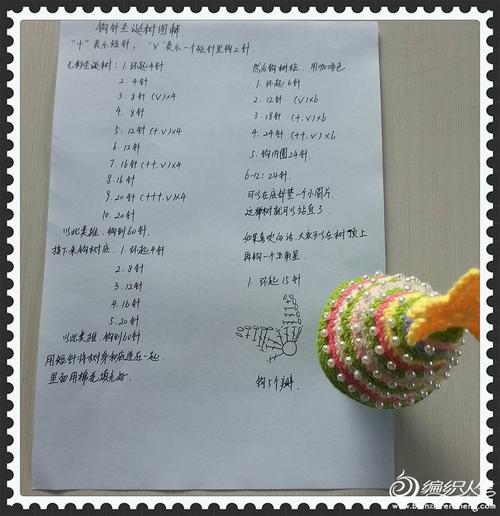 钩针圣诞树图解
"十"表示短针，"V"表示一个短针里钩2针.
圣诞树：1.环起4针
2.4针
3.8针 (V)×4
4.8针
5.12针 (+.V)×4
6.12针
7.16针 (++.V)×4
8.16针
9.20针 (+++.V)×4
10.20针
以此类推，钩到60针.
接下来钩树底.1.环起4针
2.8针
3.12针
4.16针
5.20针
以此类推 钩到60针.
用短针将树身和底连在一起.
里面用棉花填充好.
然后钩树桩，用咖啡色
1.环起6针
2.12针 (V)×6
3.18针 (+.V)×6
4.24针 (++.V)×6
5.钩内圈24针.
6-12：24针.
可以在底部垫一个小圆片
这棵树就可以站直了.
如果喜欢的话，大家可以在树顶上
再钩一个五角星
1.环起15针
钩5个瓣
编织人生
www.bianzhirensheng.com